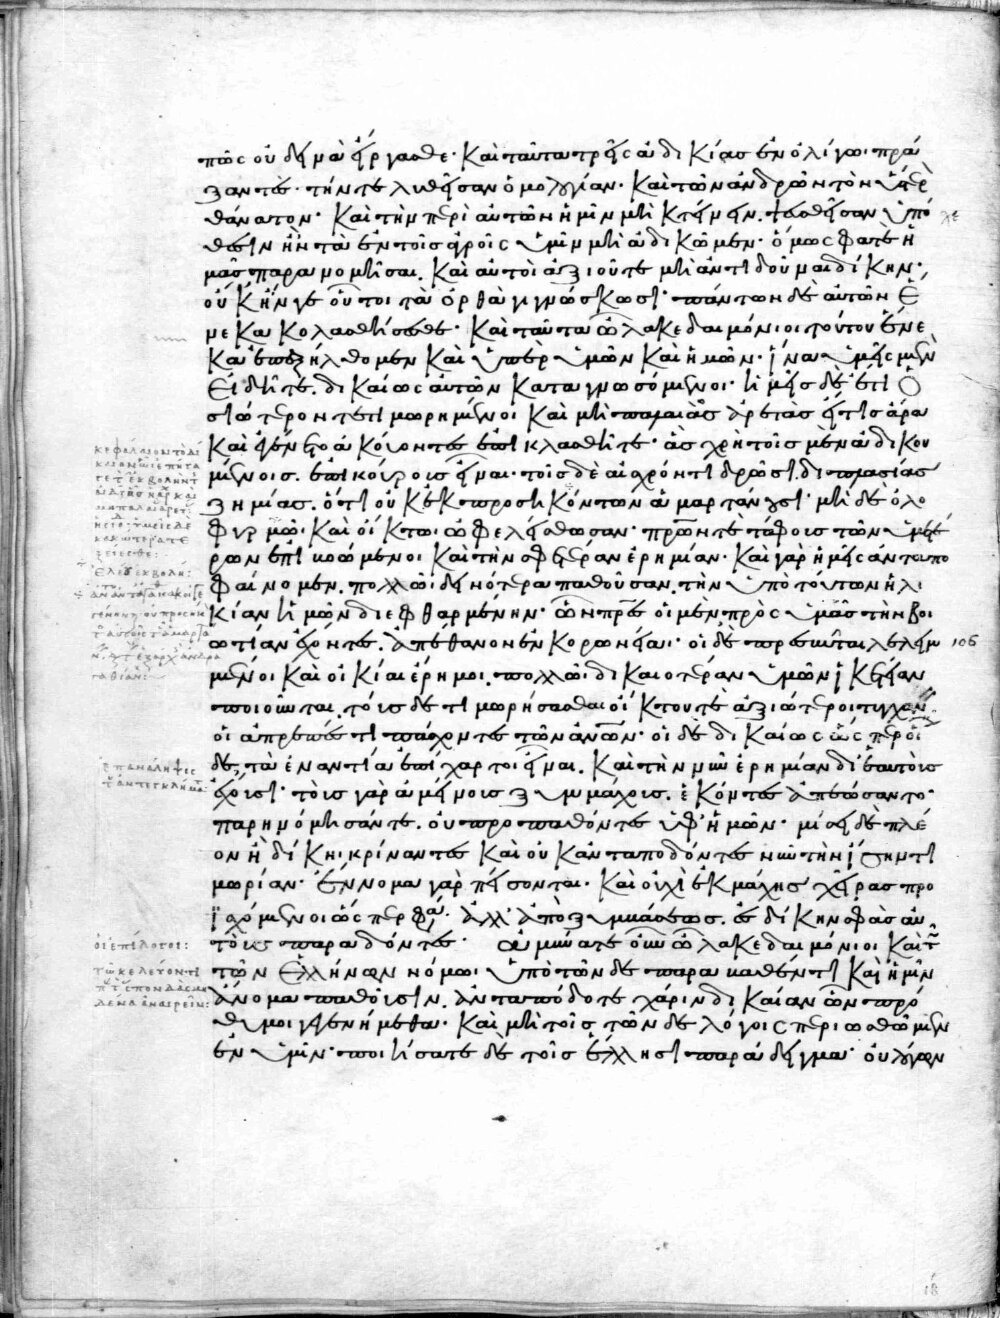 πῶς οὐ δεινὰ εἴργασθε· καὶ ταῦτα τρεῖς ἀδικίας ἐν ὀλίγωι πρά
ξαντες· τήν τε λυθεῖσαν ὁμολογίαν· καὶ τῶν ἀνδρῶν τὸν ὕστερον
θάνατον· καὶ τὴν περὶ αὐτῶν ἡμῖν μὴ κτενεῖν. ψευσθεῖσαν ὑπό
θεσιν ἢν τὰ ἐν τοῖς ἀγροῖς ὑμῖν μὴ ἀδικῶμεν· ὅμως φατὲ ἡ
μᾶς παρανομῆσαι. καὶ αὐτοὶ ἀξιοῦτε μὴ ἀντιδοῦναι δίκην·
οὐκ ἤν γε οὗτοι τὰ ὀρθὰ γιγνώσκωσι· πάντων δὲ αὐτῶν ἕ
νεκα κολασθήσεσθε· καὶ ταῦτα ὦ λακεδαιμόνιοι τούτου ἕνε
κα ἐπεξήλθομεν καὶ ὑπὲρ ὑμῶν καὶ ἡμῶν· ἵνα ὑμεῖς μὲν
εἰδῆτε. δικαίως αὐτῶν καταγνωσόμενοι· ἡμεῖς δὲ ἔτι ὁ
σιώτερον τετιμωρημένοι καὶ μὴ παλαιὰς ἀρετὰς εἴ τις ἄρα
καὶ ἐγένετο ἀκούοντες ἐπικλασθῆτε· ἃς χρὴ τοῖς μὲν ἀδικου
μένοις. ἐπικούρους εἶναι· τοῖς δὲ αἰσχρόν τι δρῶσι. διπλασίας
ζημίας. ὅτι οὐκ ἐκ προσηκόντων ἁμαρτάνουσι· μὴ δὲ ὀλο
φυρμῶι· καὶ οἴκτωι ὠφελείσθωσαν· πρῶν τε τάφους τῶν ὑμετέ
ρων ἐπιβοώμενοι καὶ τὴν σφετέραν ἐρημίαν· καὶ γὰρ ἡμεῖς ἀνταπο
φαίνομεν. πολλῶι δεινότερα παθοῦσαν. τὴν ὑπὸ τούτων ἡλι
κίαν ἡμῶν διεφθαρμένην· ὧν πρες οἱ μὲν πρὸς ὑμᾶς τὴν βοι
ωτίαν ἄγοντες. ἀπέθανον ἐν κορωνείαι· οἱ δὲ πρεσβῦται λελειμ 106
μένοι καὶ οἰκίαι ἐρημοι. πολλῶι δικαιοτέραν ὑμῶν ἱκετείαν
ποιοῦνται. τούσδε τιμωρήσασθαι οἴκτου τε ἀξιώτεροι τυγχάνειν
οἱ ἀπρεπές τι πάσχοντες τῶν ἀνων· οἱ δὲ δικαίως ὥσπερ οἵ
δε, τὰ ἐναντία ἐπίχαρτοι εἶναι. καὶ τὴν νῦν ἐρημίαν δι' ἑαυτοὺς
ἔχουσι· τοὺς γὰρ ἀμείνους ξυμμάχους. ἑκόντες ἀπεώσαντο·
παρηνόμησάν τε. οὐ προπαθόντες ὑφ' ἡμῶν· μίσει δὲ πλέ
ον ἢ δίκηι κρίναντες καὶ οὐκ ἀνταποδόντες νῦν τὴν ἴσην τι
μωρίαν· ἔννομα γὰρ πείσονται. καὶ οὐχὶ ἐκ μάχης χεῖρας προ
ϊσχόμενοι ὥσπερ φα. ἀλλ' ἀπὸ ξυμβάσεως. ἐς δίκην σφᾶς αὐ
τοὺς παραδόντες· ἀμύνατε οὖν ὦ λακεδαιμόνιοι καὶ τῶ
τῶν ἑλλήνων νόμωι ὑπὸ τῶνδε παραβαθέντι καὶ ἡμῖν
ἄνομα παθοῦσιν. ἀνταπόδοτε χάριν δικαίαν ὧν πρό
θυμοι γεγενήμεθα· καὶ μὴ τοῖς τῶνδε λόγοις περιωσθῶμεν
ἐν ὑμῖν· ποιήσατε δὲ τοῖς ἕλλησι παράδειγμα· οὐ λόγων
οἱ ἐπίλογοι: